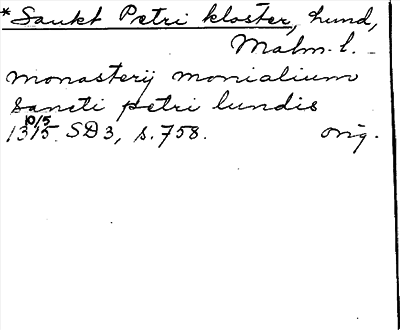 *Sankt Petri kloster, Lund,
Malm. l.
monasterij monialium
sancti petri lundis
10/5
1315. SD3, s. 758. orig.